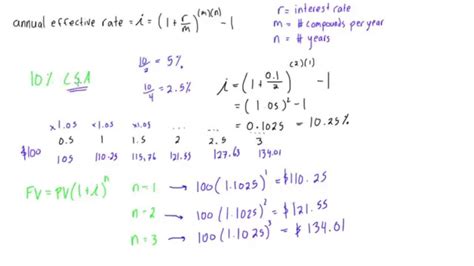 annual effective rate = i = (1 + r/m)^(m)(n) - 1
r = interest rate
m = # compounds per year
n = # years
10% C.S.A
10/2 = 5%
10/4 = 2.5%
i = (1 + 0.1/2)^(2)(1) - 1
= (1.05)^2 - 1
= 0.1025 = 10.25%
x1.05 x1.05 x1.05 ... ... ...
0.5 1 1.5 2 2.5 3
$100
105 110.25 115.76 121.55 127.63 134.01
FV = PV(1+i)^n
n-1 → 100(1.1025)^1 = $110.25
n-2 → 100(1.1025)^2 = $121.55
n=3 → 100(1.1025)^3 = $134.01